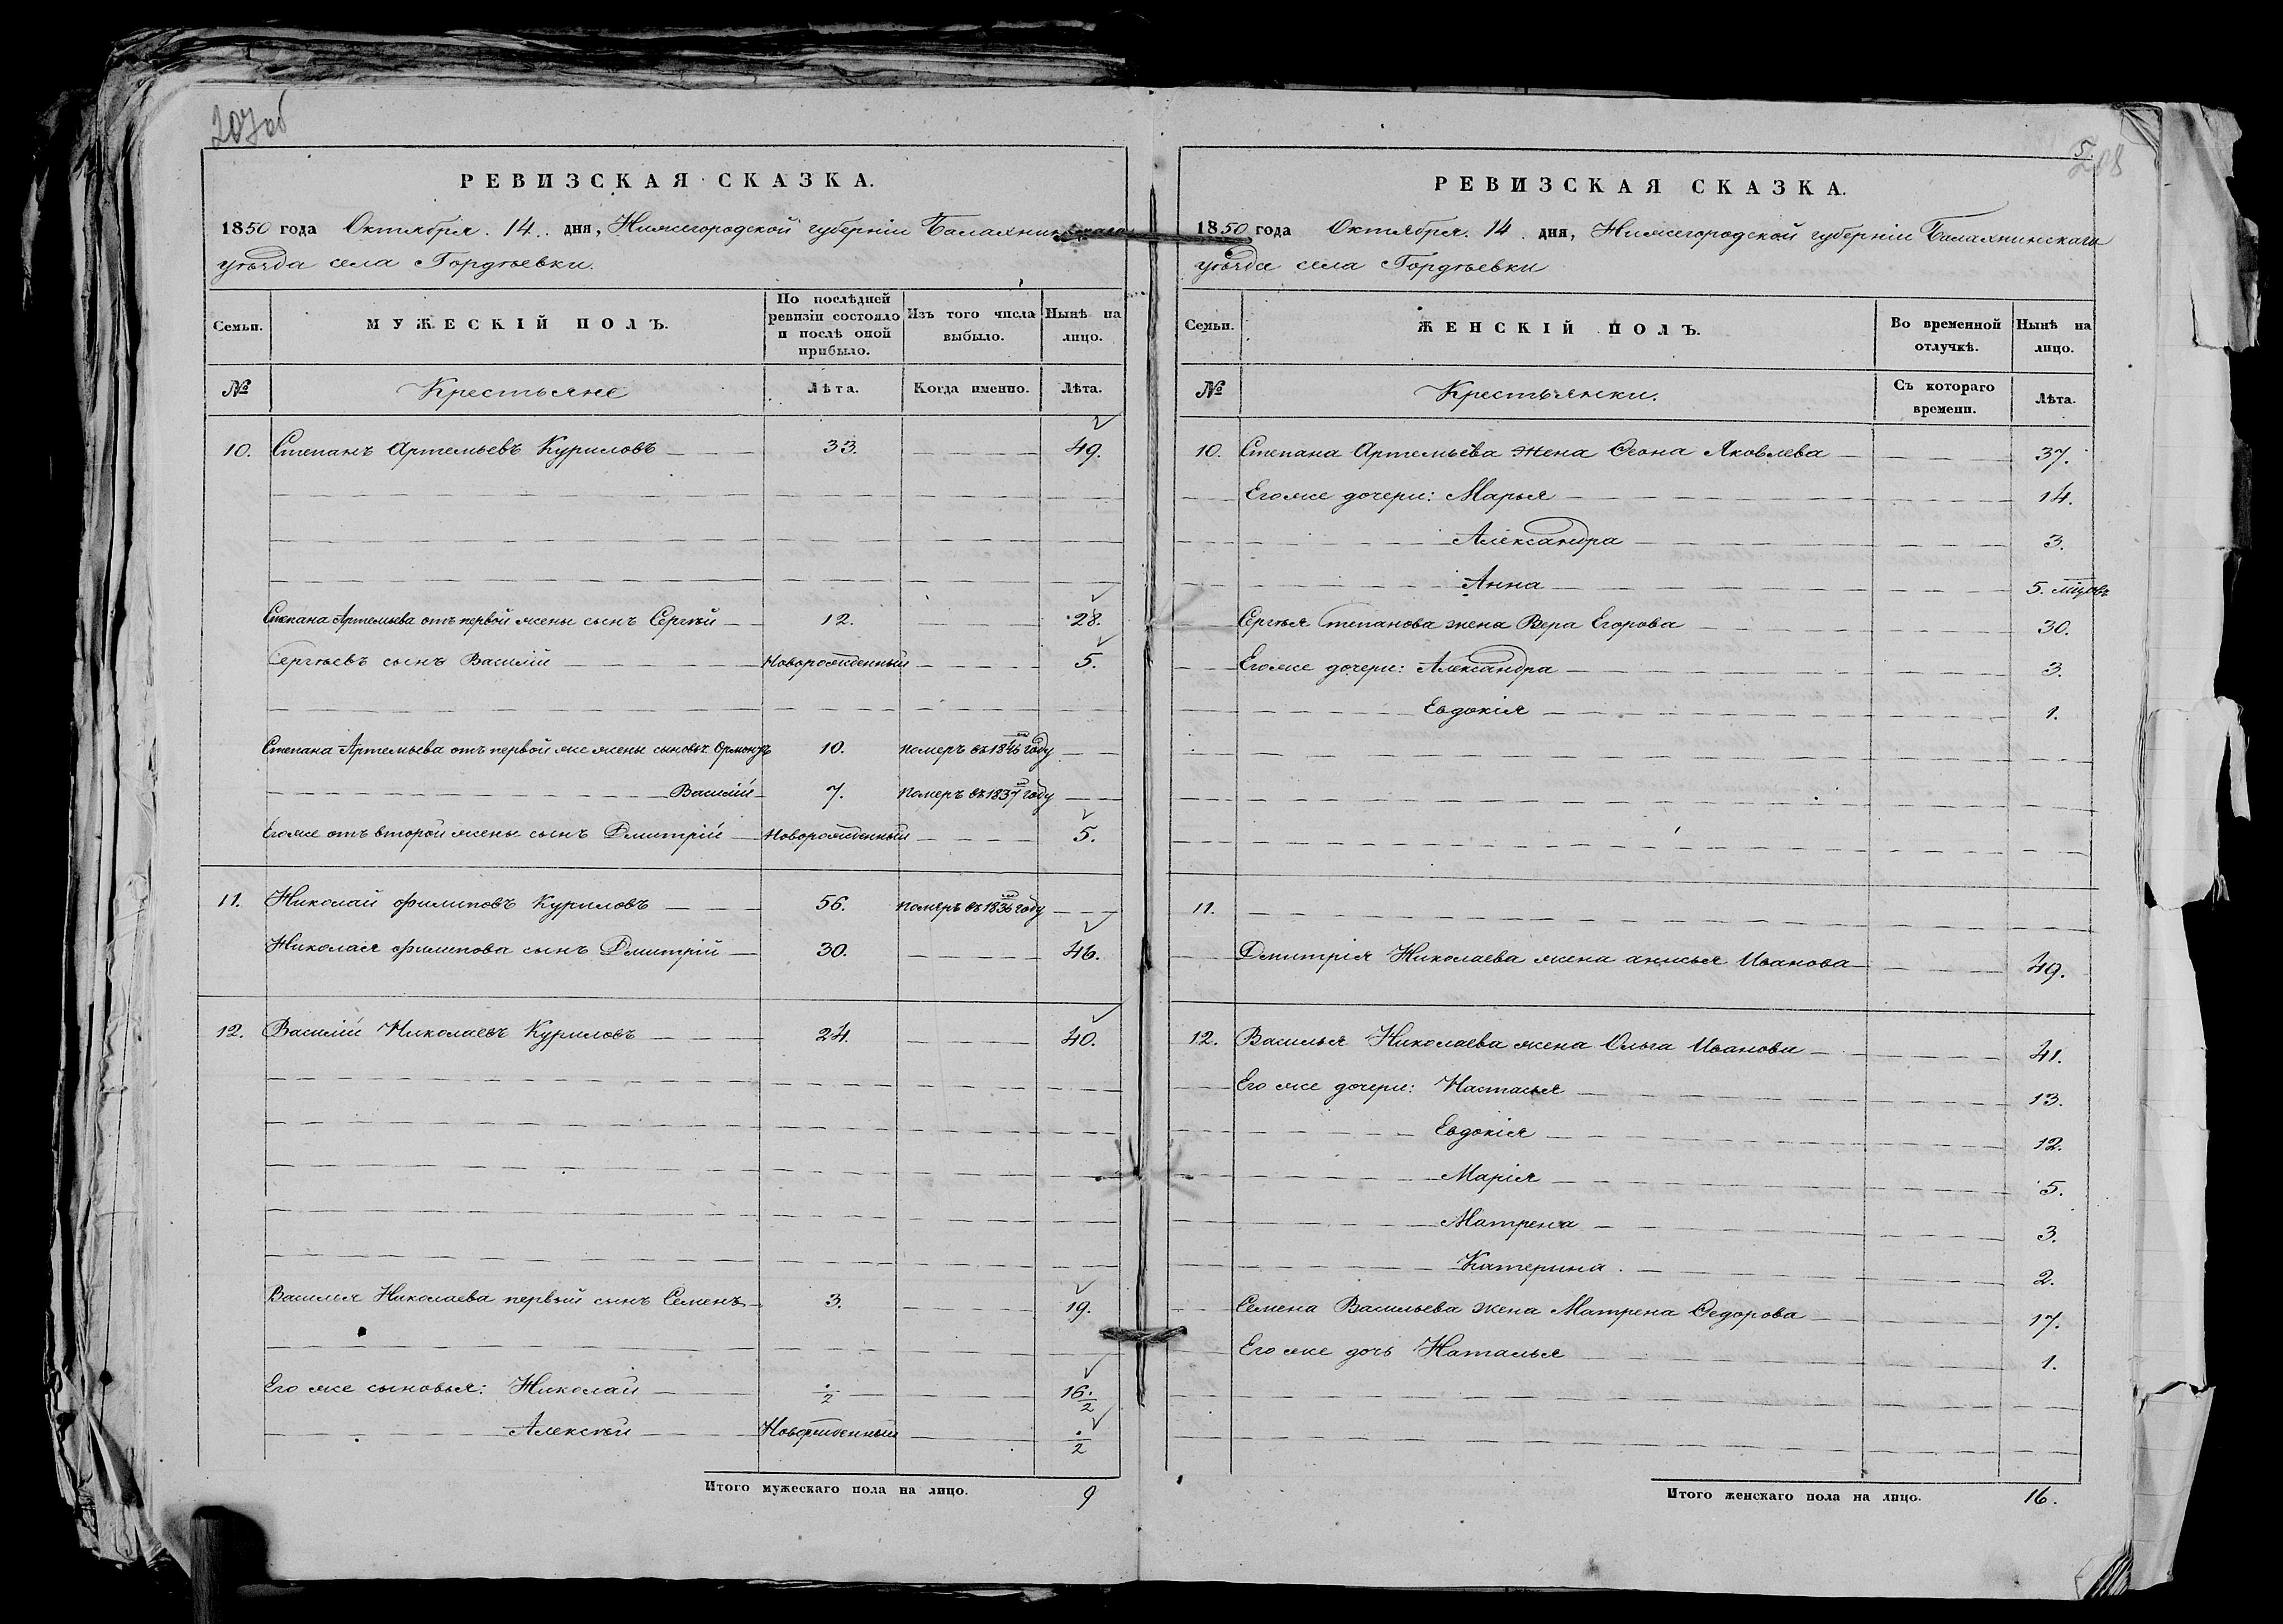 207об
РЕВИЗСКАЯ СКАЗКА.
1850 года Октября 14 дня, Нижегородской губерніи Балахнинскаго
уѣзда села Гордѣевки.
Семьи. МУЖЕСКІЙ ПОЛЪ. По послѣдней ревизіи состояло и послѣ оной прибыло. Изъ того числа выбыло. Нынѣ на лицо.
№ Крестьяне Лѣта. Когда именно. Лѣта.
10. Степанъ Артемьевъ Куриловъ 33. 49.
Степана Артемьева отъ первой жены сынъ Сергѣй 12. 28.
Сергѣевъ сынъ Василій Новорожденный 5.
Степана Артемьева отъ первой же жены сыновья 10. померъ въ 1846 году
Василій 7. померъ въ 1837 году
Его же отъ второй жены сынъ Дмитрій Новорожденный 5.
11. Николай Филиповъ Куриловъ 56. померъ въ 1836 году
Николая Филипова сынъ Дмитрій 30. 46.
12. Василій Николаевъ Куриловъ 24. 40.
Василья Николаева первый сынъ Семенъ 3. 19.
Его же сыновья: Николай ·/2 16 ·/2
Алексѣй Новорожденный ·/2
Итого мужескаго пола на лицо. 9
5
208
РЕВИЗСКАЯ СКАЗКА.
1850 года Октября 14 дня, Нижегородской губерніи Балахнинскаго
уѣзда села Гордѣевки
Семьи. ЖЕНСКІЙ ПОЛЪ. Во временной отлучкѣ. Нынѣ на лицо.
№ Крестьянки. Съ котораго времени. Лѣта.
10. Степана Артемьева жена Яковлева 37.
Его же дочери: Марья 14.
Александра 3.
Анна 5. мѣцовъ
Сергѣя Степанова жена Вера Егорова 30.
Его же дочери: Александра 3.
Евдокія 1.
11.
Дмитрія Николаева жена анисья Иванова 49.
12. Василья Николаева жена Ольга Иванова 41.
Его же дочери: Настасья 13.
Евдокія 12.
Марія 5.
Матрена 3.
Катерина 2.
Семена Васильева жена Матрена Ѳедорова 17.
Его же дочь Наталья 1.
Итого женскаго пола на лицо. 16.